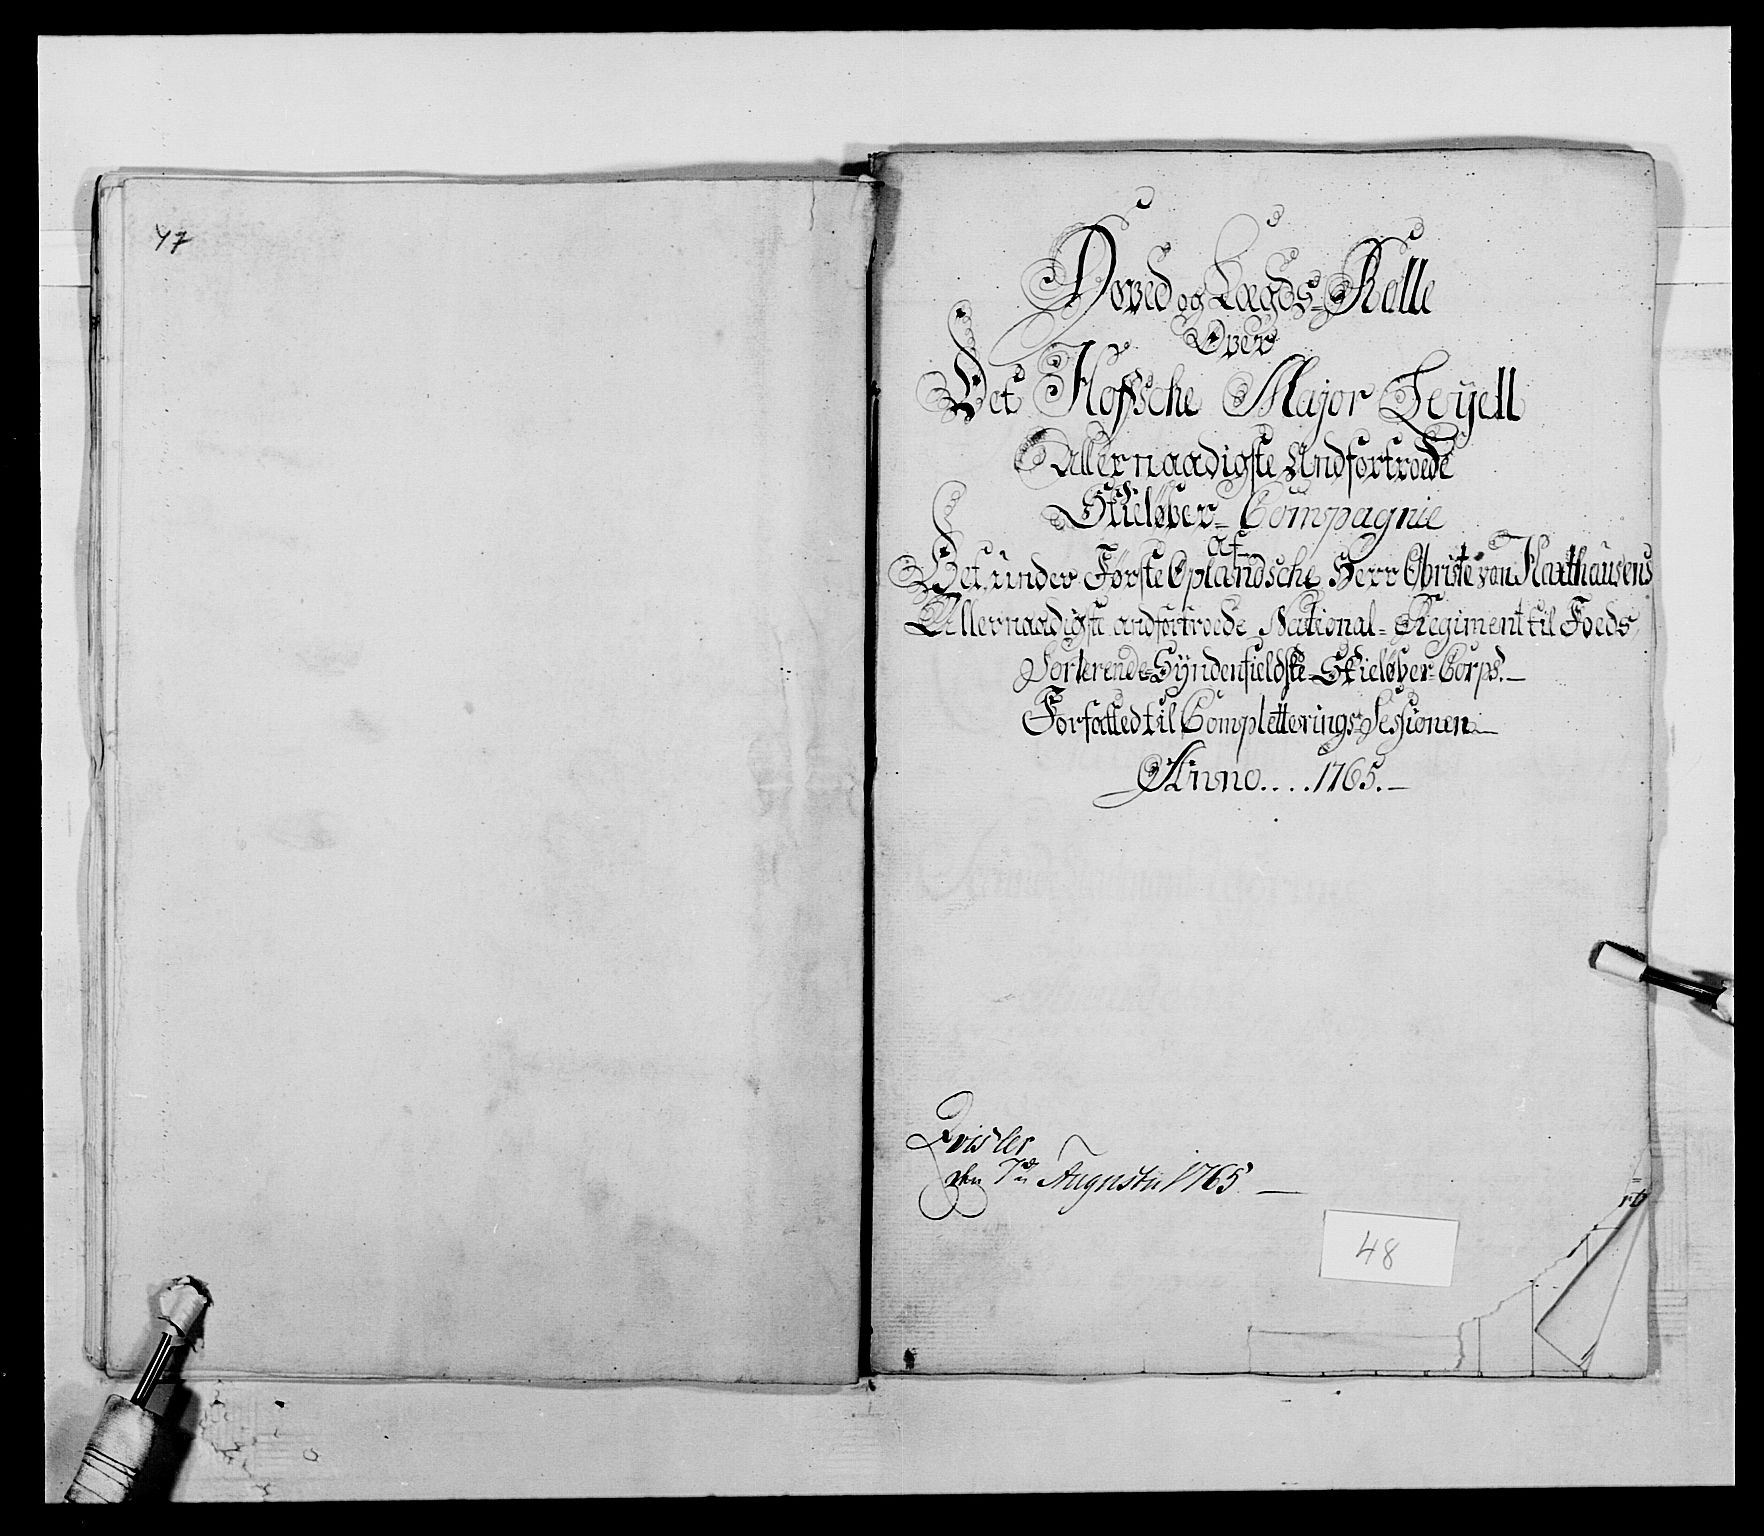 47
Hoved og Lægds-Rulle
Over
Det Hoffsche Major Leyell
Allernaadigste Andfortroede
Skieløber- Compagnie
af
Det under Første Oplandsche Herr Obriste von Haxthausens
Allernaadigste andfortroede National-Regiment til Foeds
Sorterende Syndenfieldske-Skieløber-Corps.
Forfatted til Completterings-Sessionen
Anno....1765.
Qvisler
den 7de Augustii 1765
48